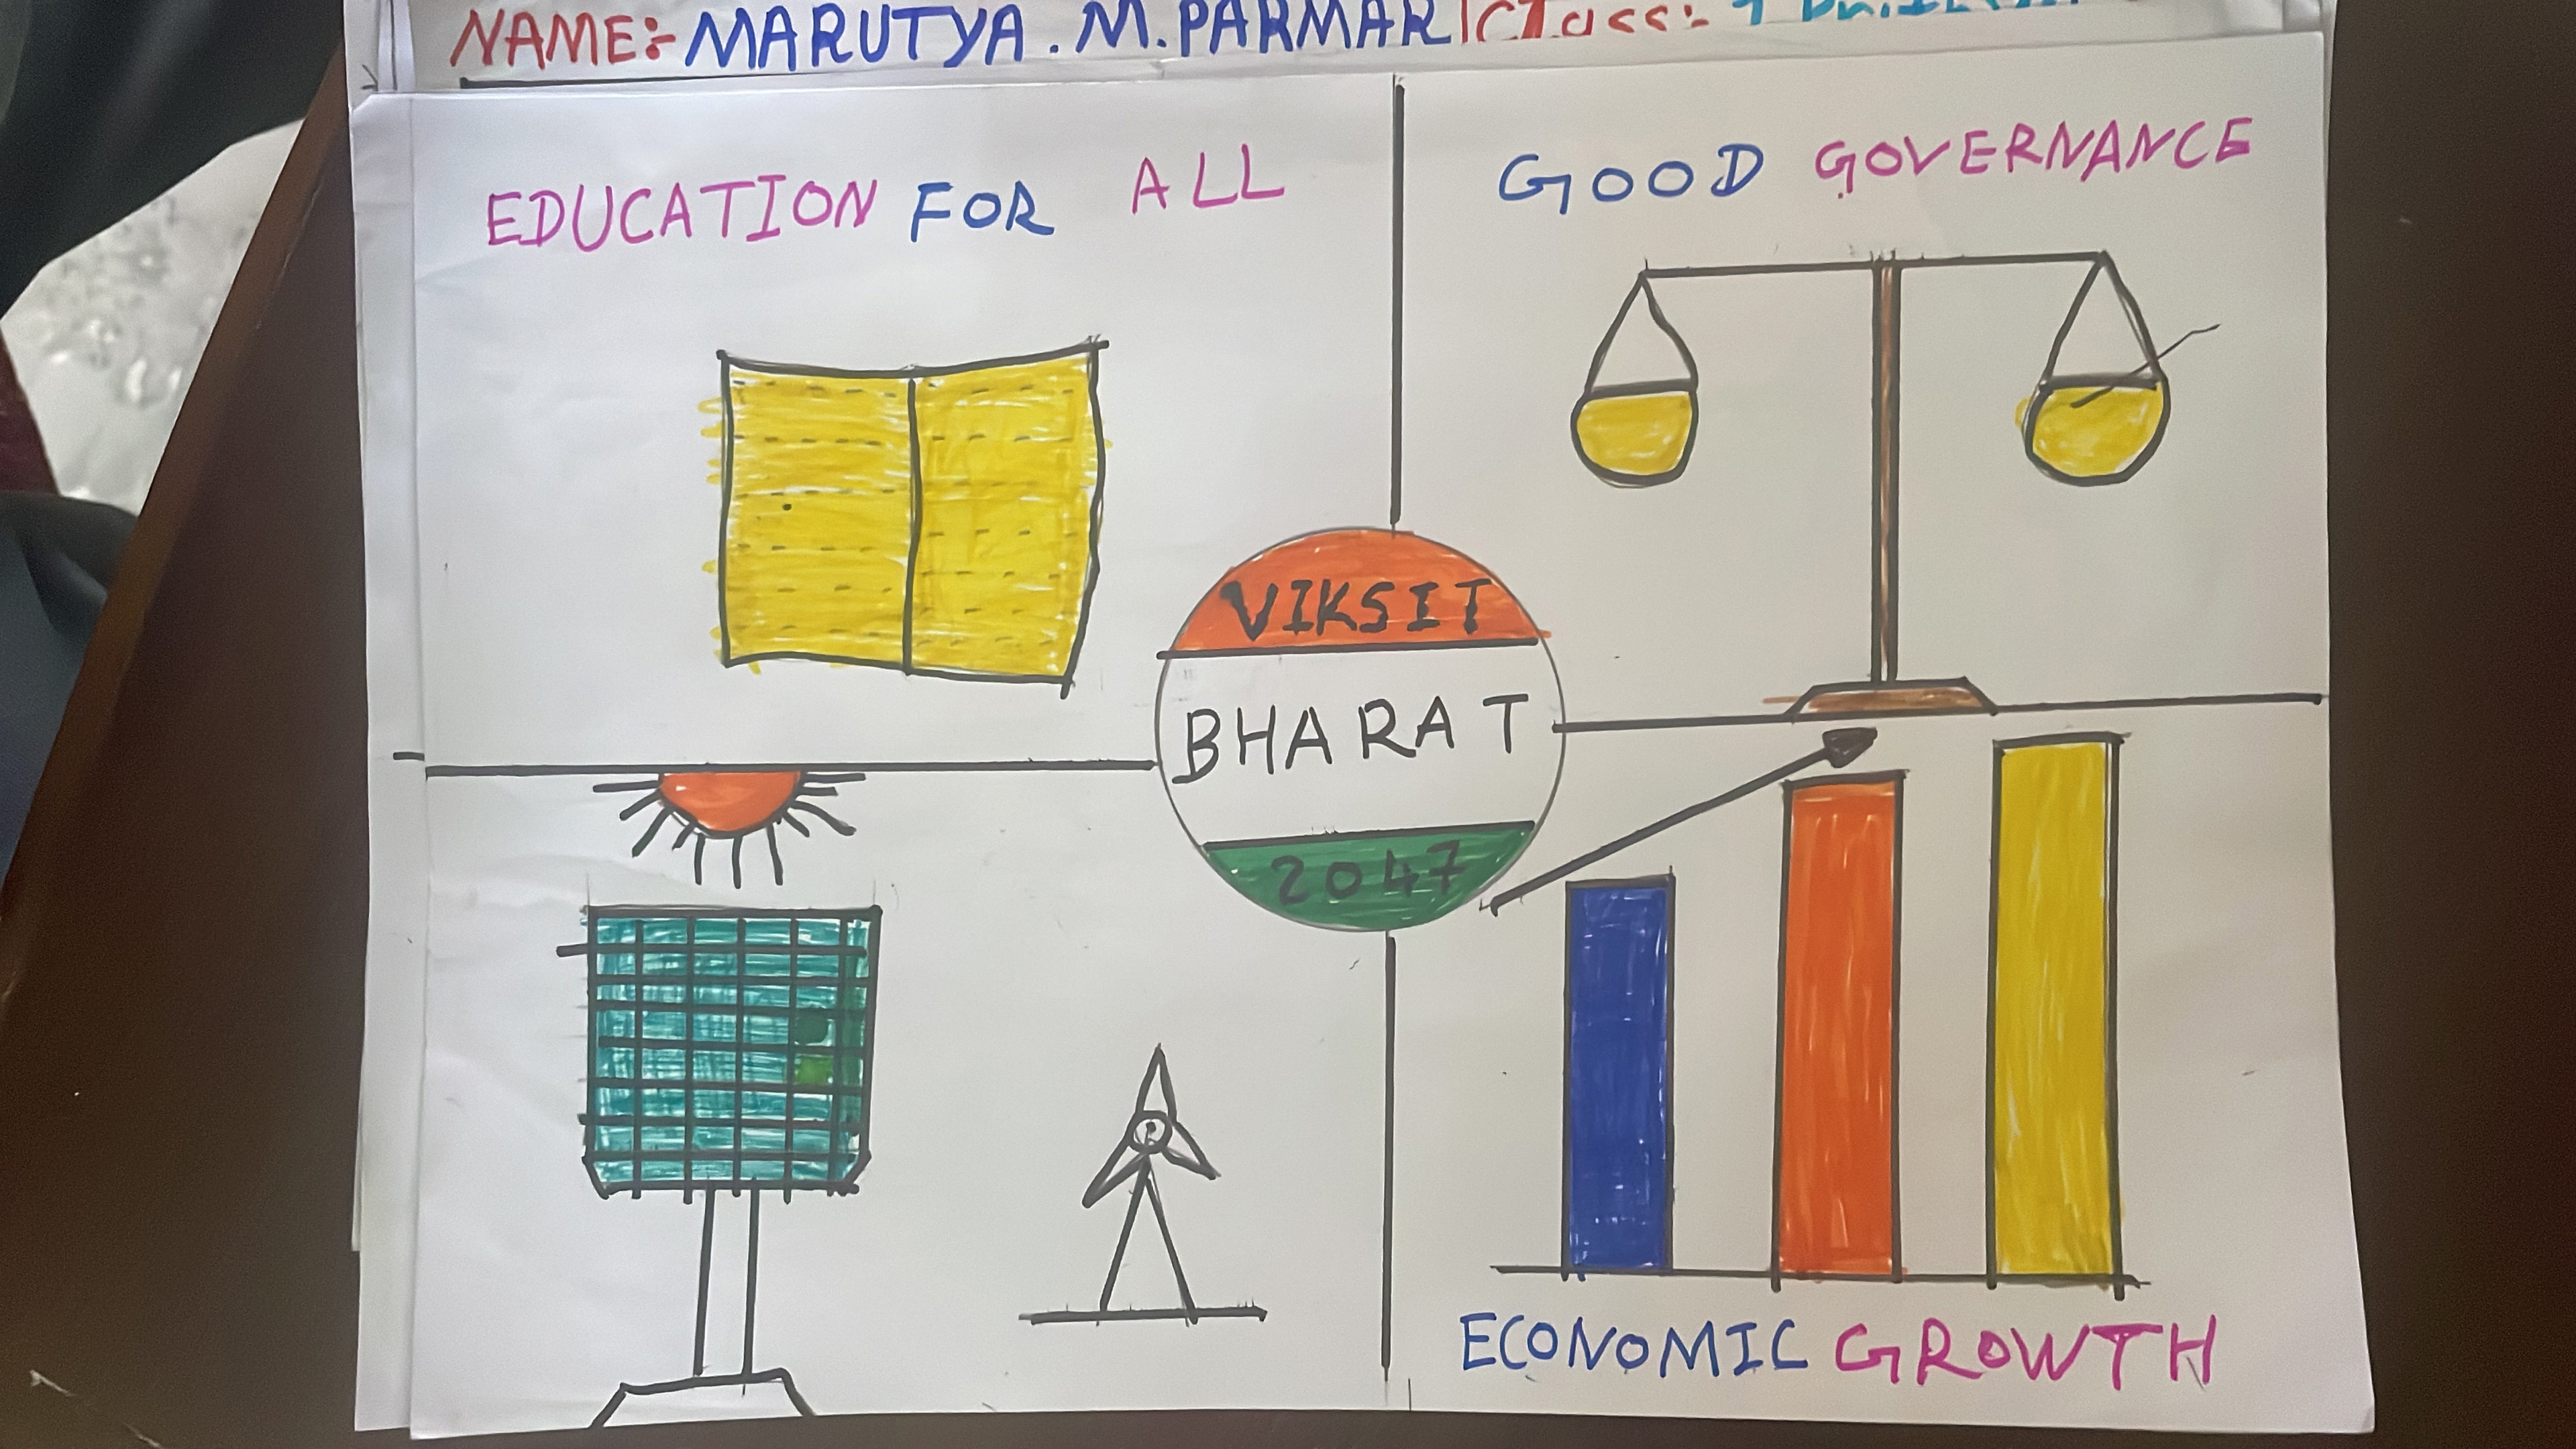 NAME:- MARUTYA.M.PARMAR Class:-
EDUCATION FOR ALL
GOOD GOVERNANCE
VIKSIT
BHARAT
2047
ECONOMIC GROWTH